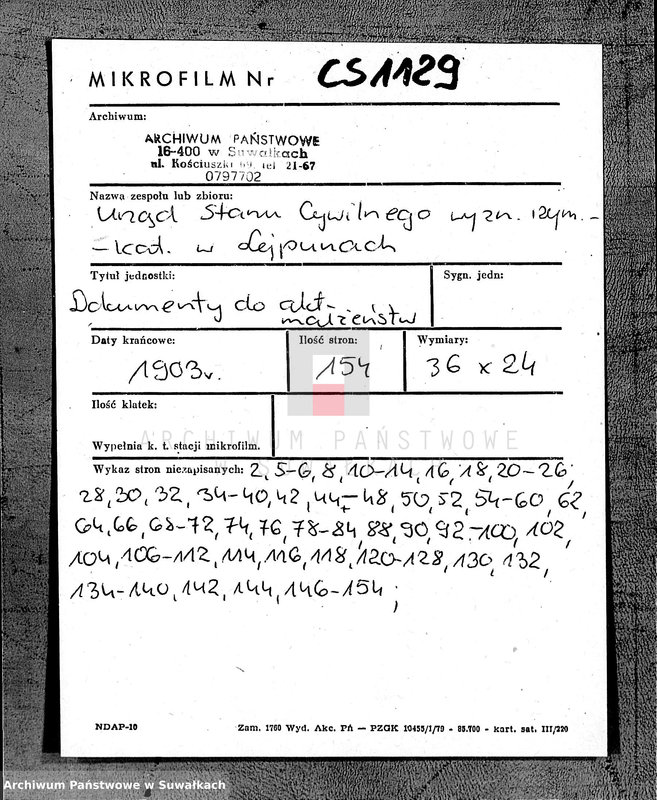 MIKROFILM Nr CS1129
Archiwum:
ARCHIWUM PAŃSTWOWE
16-400 w Suwałkach
ul. Kościuszki 69, tel 21-67
0797702
Nazwa zespołu lub zbioru:
Urząd Stanu Cywilnego wyzn. rzym.-
-kat. w Lejpunach
Tytuł jednostki:
Sygn. jedn:
Dokumenty do akt
małżeństw
Daty krańcowe:
Ilość stron:
Wymiary:
1903r.
154
36 x 24
Ilość klatek:
ARCHIWUM PAŃSTWOWE
Wypełnia k. t. stacji mikrofilm.
Wykaz stron niezapisanych: 2, 5-6, 8, 10-14, 16, 18, 20-26,
28, 30, 32, 34-40, 42, 44-48, 50, 52, 54-60, 62,
64, 66, 68-72, 74, 76, 78-84, 88, 90, 92-100, 102,
104, 106-112, 114, 116, 118, 120-128, 130, 132,
134-140, 142, 144, 146-154;
NDAP-10
Zam. 1760 Wyd. Akc. Pń — PZGK 10455/1/79 - 85.700 - kart. sat. III/220
Archiwum Państwowe w Suwałkach